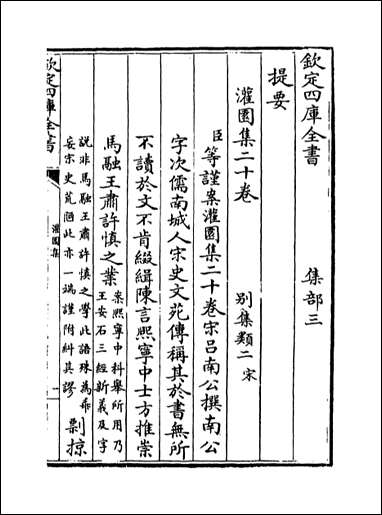 欽定四庫全書　集部三
提要
灌園集二十卷　別集類二宋
臣等謹案灌園集二十卷宋呂南公撰南公
字次儒南城人宋史文苑傳稱其於書無所
不讀於文不肯綴緝陳言熙寧中士方推崇
馬融王肅許慎之業案熙寧中科舉所用乃
王安石三經新義及字
說非馬融王肅許慎之學此語殊為乖
妄宋史荒陋此亦一端謹附糾其謬剽掠
欽定四庫全書
灌園集
一